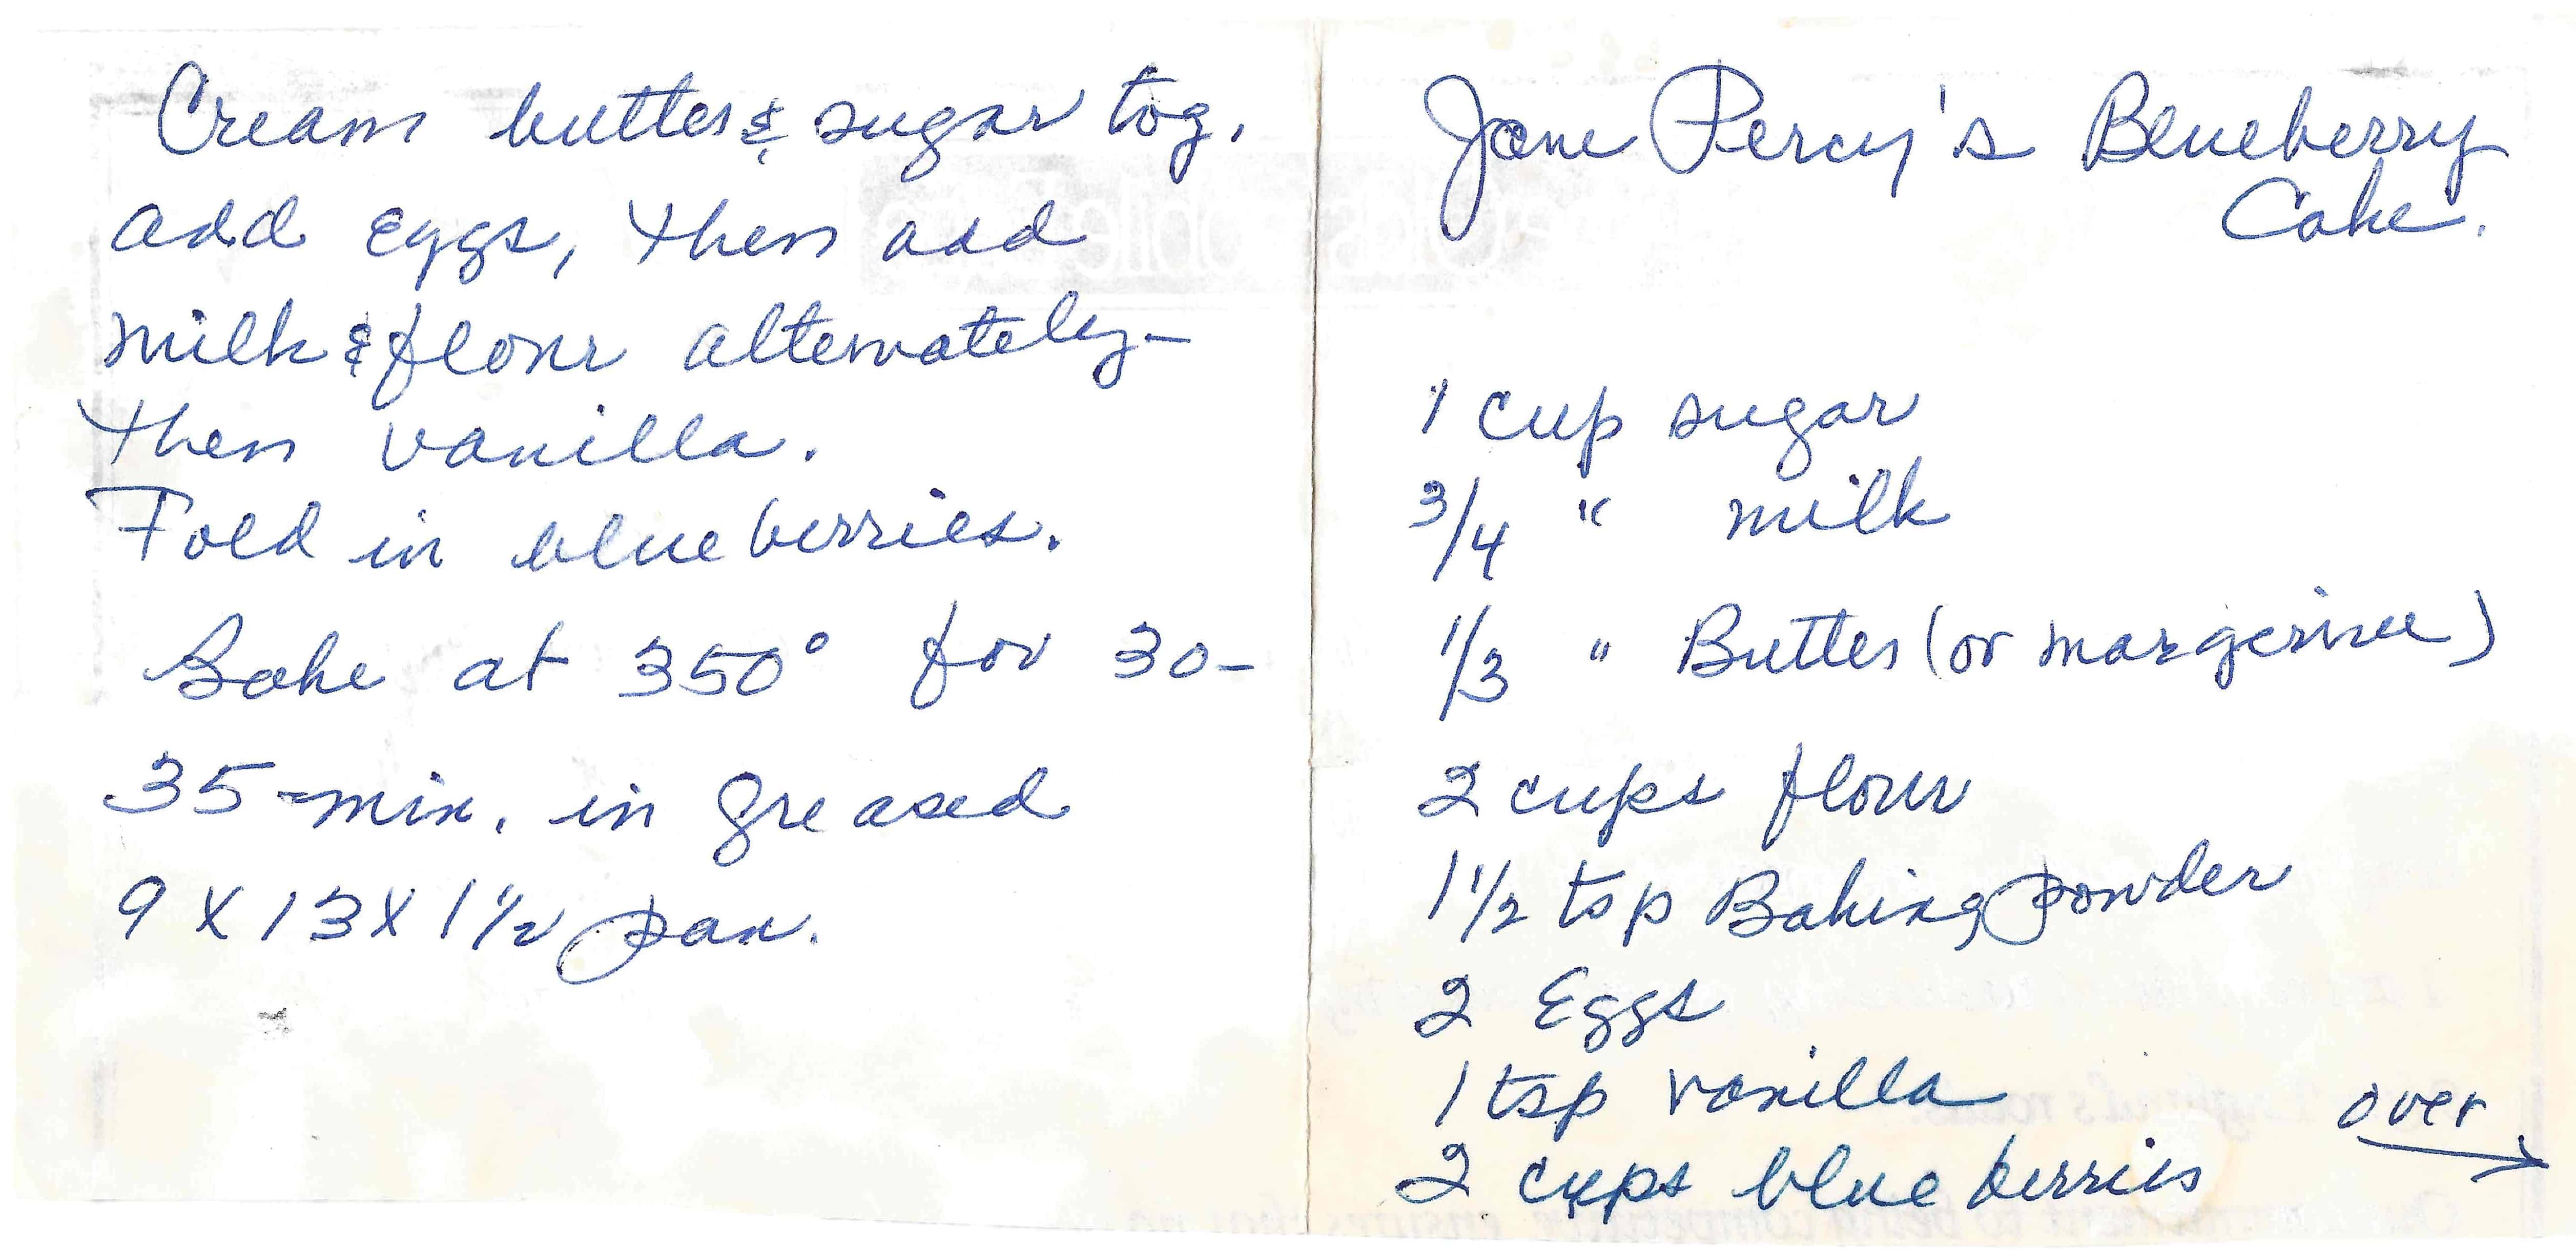 Jane Percy's Blueberry
Cake.
1 cup sugar
3/4 " milk
1/3 " Butter (or margerine)
2 cups flour
1 1/2 tsp Baking powder
2 Eggs
1 tsp vanilla
2 cups blueberries
over
Cream butter & sugar tog.
add eggs, then add
milk & flour alternately -
then vanilla.
Fold in blueberries.
Bake at 350° for 30-
35 min. in greased
9 X 13 X 1 1/2 pan.